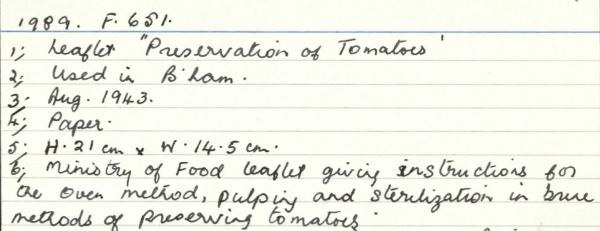 1989. F. 651.
1; Leaflet "Preservation of Tomatoes'
2; Used in B'ham.
3; Aug. 1943.
4; Paper.
5; H. 21 cm x W. 14.5 cm.
6; Ministry of Food leaflet giving instructions for
the oven method, pulping and sterilization in brine
methods of preserving tomatoes.